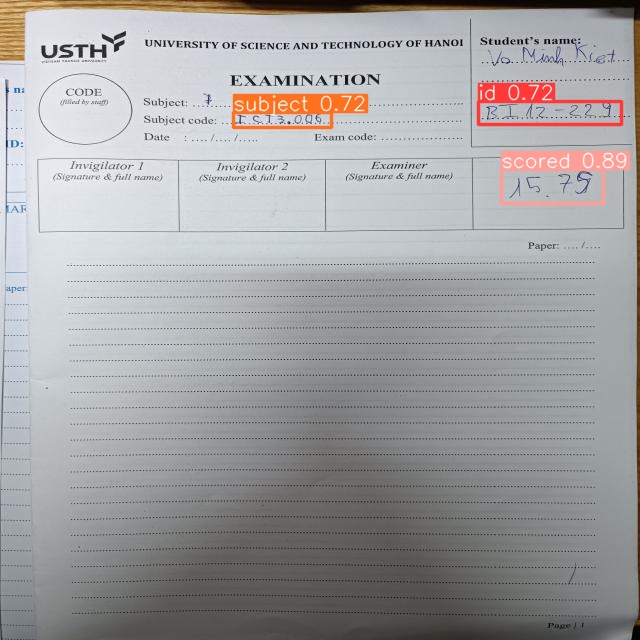 USTH
VIETNAM FRANCE UNIVERSITY
UNIVERSITY OF SCIENCE AND TECHNOLOGY OF HANOI
Student's name:
Vo Minh Kiet
EXAMINATION
CODE
(filled by staff)
Subject:
subject 0.72
Subject code: ICT3.006
Date : ..../..../.....
Exam code:
id 0.72
BI12-229
Invigilator 1
(Signature & full name)
Invigilator 2
(Signature & full name)
Examiner
(Signature & full name)
scored 0.89
15.75
Paper: ..../....
Page | 1